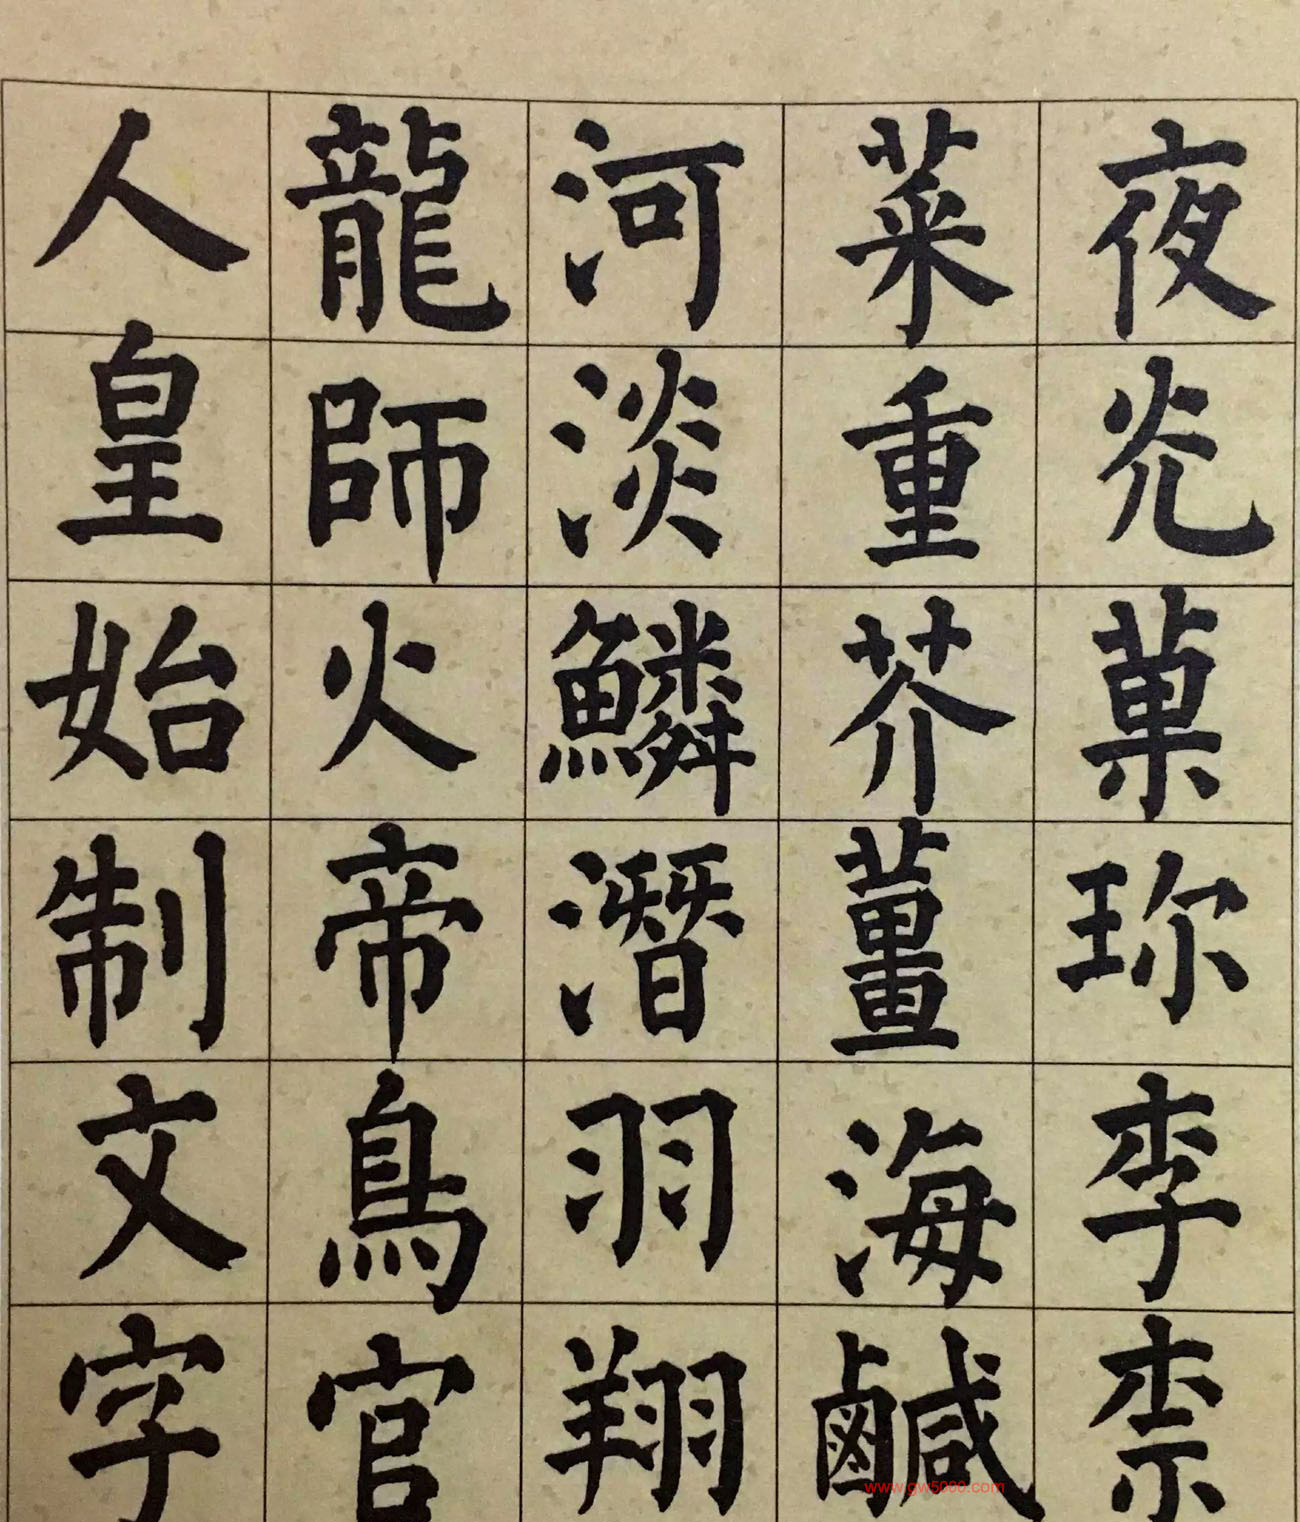 夜光菓珎李柰
菜重芥薑海鹹
河淡鱗潛羽翔
龍師火帝鳥官
人皇始制文字
www.gw5000.com